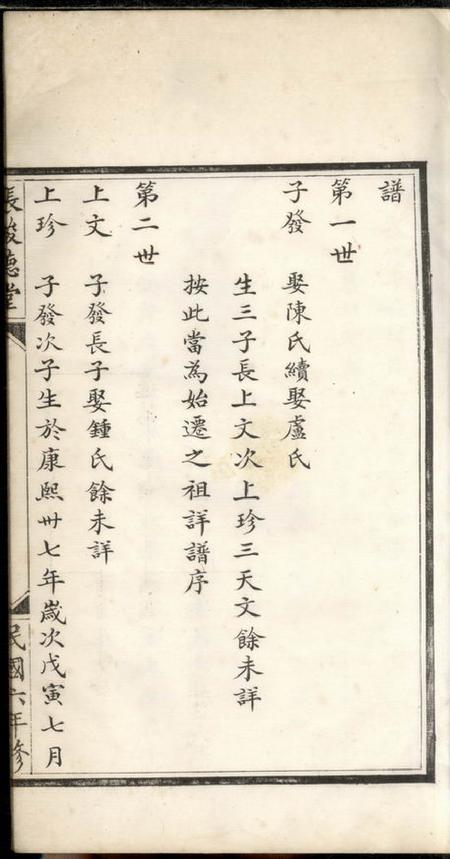 譜
第一世
子發 娶陳氏續娶盧氏
生三子長上文次上珍三天文餘未詳
按此當為始遷之祖詳譜序
第二世
上文 子發長子娶鍾氏餘未詳
上珍 子發次子生於康熙卅七年歲次戊寅七月
長發德堂
民國六年修